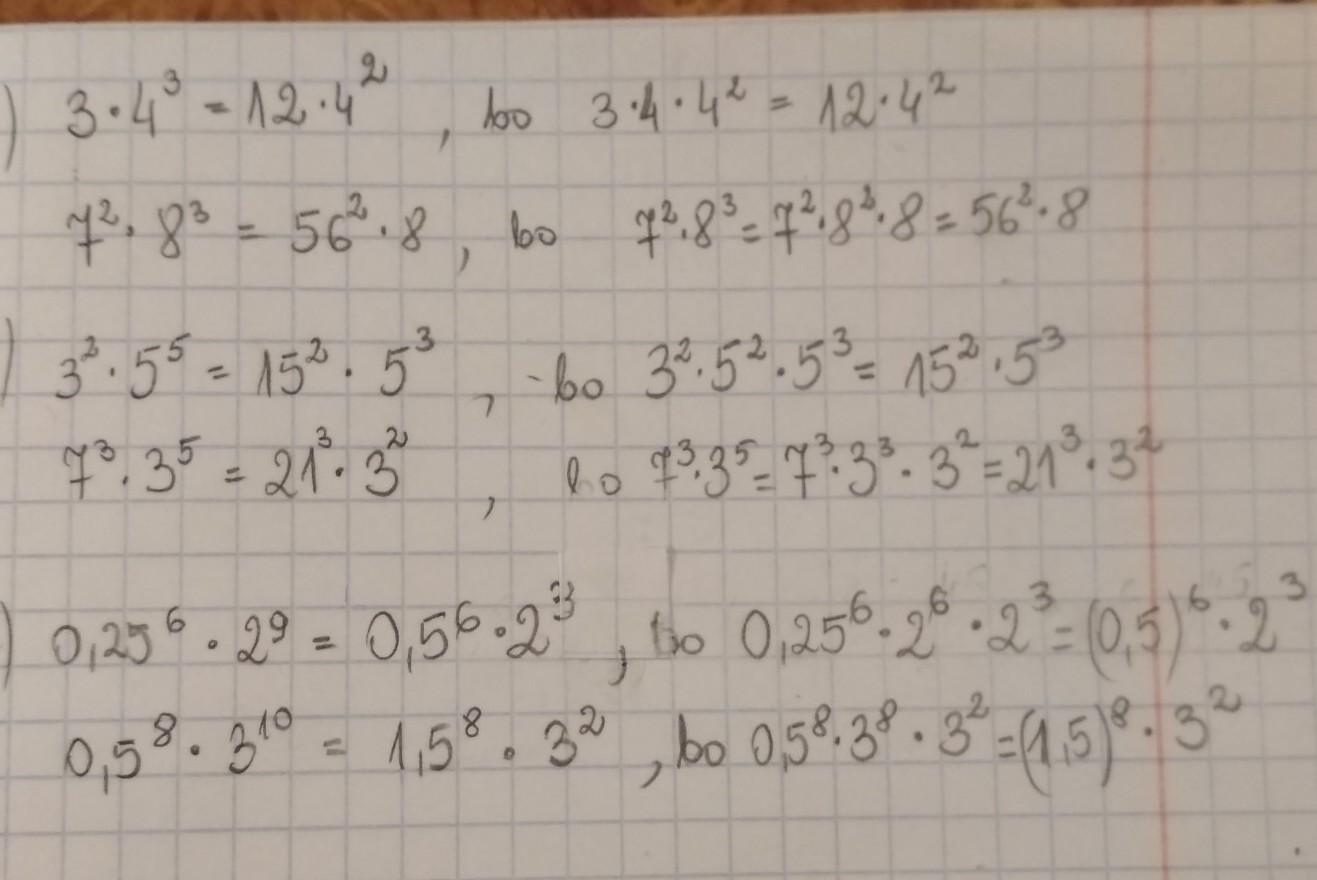 ) 3·4³ = 12·4², bo 3·4·4² = 12·4²
7²·8³ = 56²·8, bo 7²·8³ = 7²·8²·8 = 56²·8
) 3²·5⁵ = 15²·5³, bo 3²·5²·5³ = 15²·5³
7³·3⁵ = 21³·3², bo 7³·3⁵ = 7³·3³·3² = 21³·3²
) 0,25⁶·2⁹ = 0,5⁶·2³, bo 0,25⁶·2⁶·2³ = (0,5)⁶·2³
0,5⁸·3¹⁰ = 1,5⁸·3², bo 0,5⁸·3⁸·3² = (1,5)⁸·3²